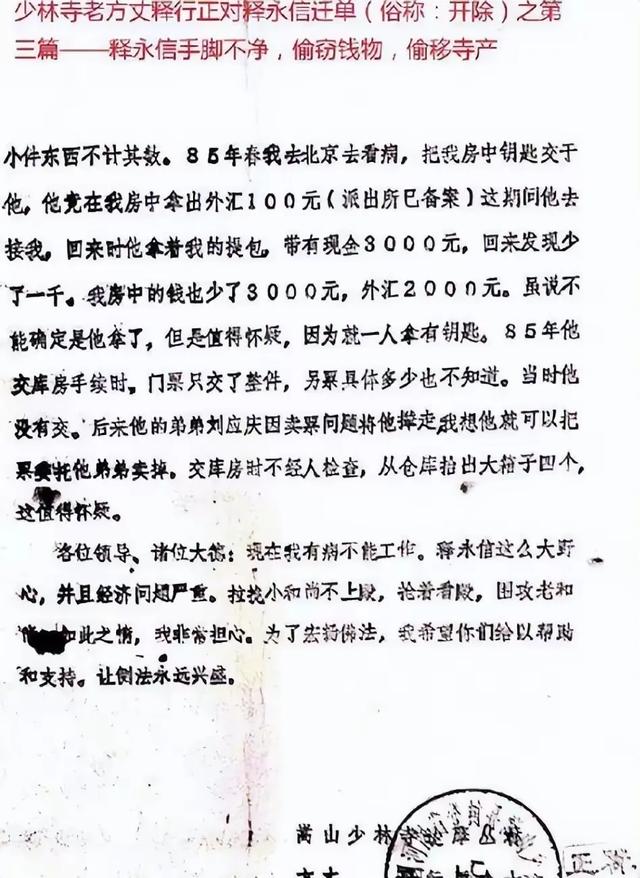 少林寺老方丈释行正对释永信迁单（俗称：开除）之第
三篇——释永信手脚不净，偷窃钱物，偷移寺产
小件东西不计其数。85年春我去北京去看病，把我房中钥匙交于
他，他竟在我房中拿出外汇100元（派出所已备案）这期问他去
接我。回来时他拿着我的提包，带有现金3000元，回来发现少
了一千。我房中的钱也少了3000元，外汇2000元。虽说不
能确定是他拿了，但是值得怀疑，因为就一人拿有钥匙。85年他
交库房手续时。门票只交了整件，另票具体多少也不知道。当时他
没有交。后来他的弟弟刘应庆因卖票问题将他撵走，我想他就可以把
票委托他弟弟卖掉。交库房时不经人检查，从仓库抬出大箱子四个，
这值得怀疑。
各位领导、诸位大德：现在我有病不能工作。释永信这么大野
心，并且经济问题严重。拉拢小和尚不上殿，抢着看殿，围攻老和
如此之情，我非常担心。为了宏扬佛法，我希望你们给以帮助
和支持。让佛法永远兴盛。
嵩山少林寺